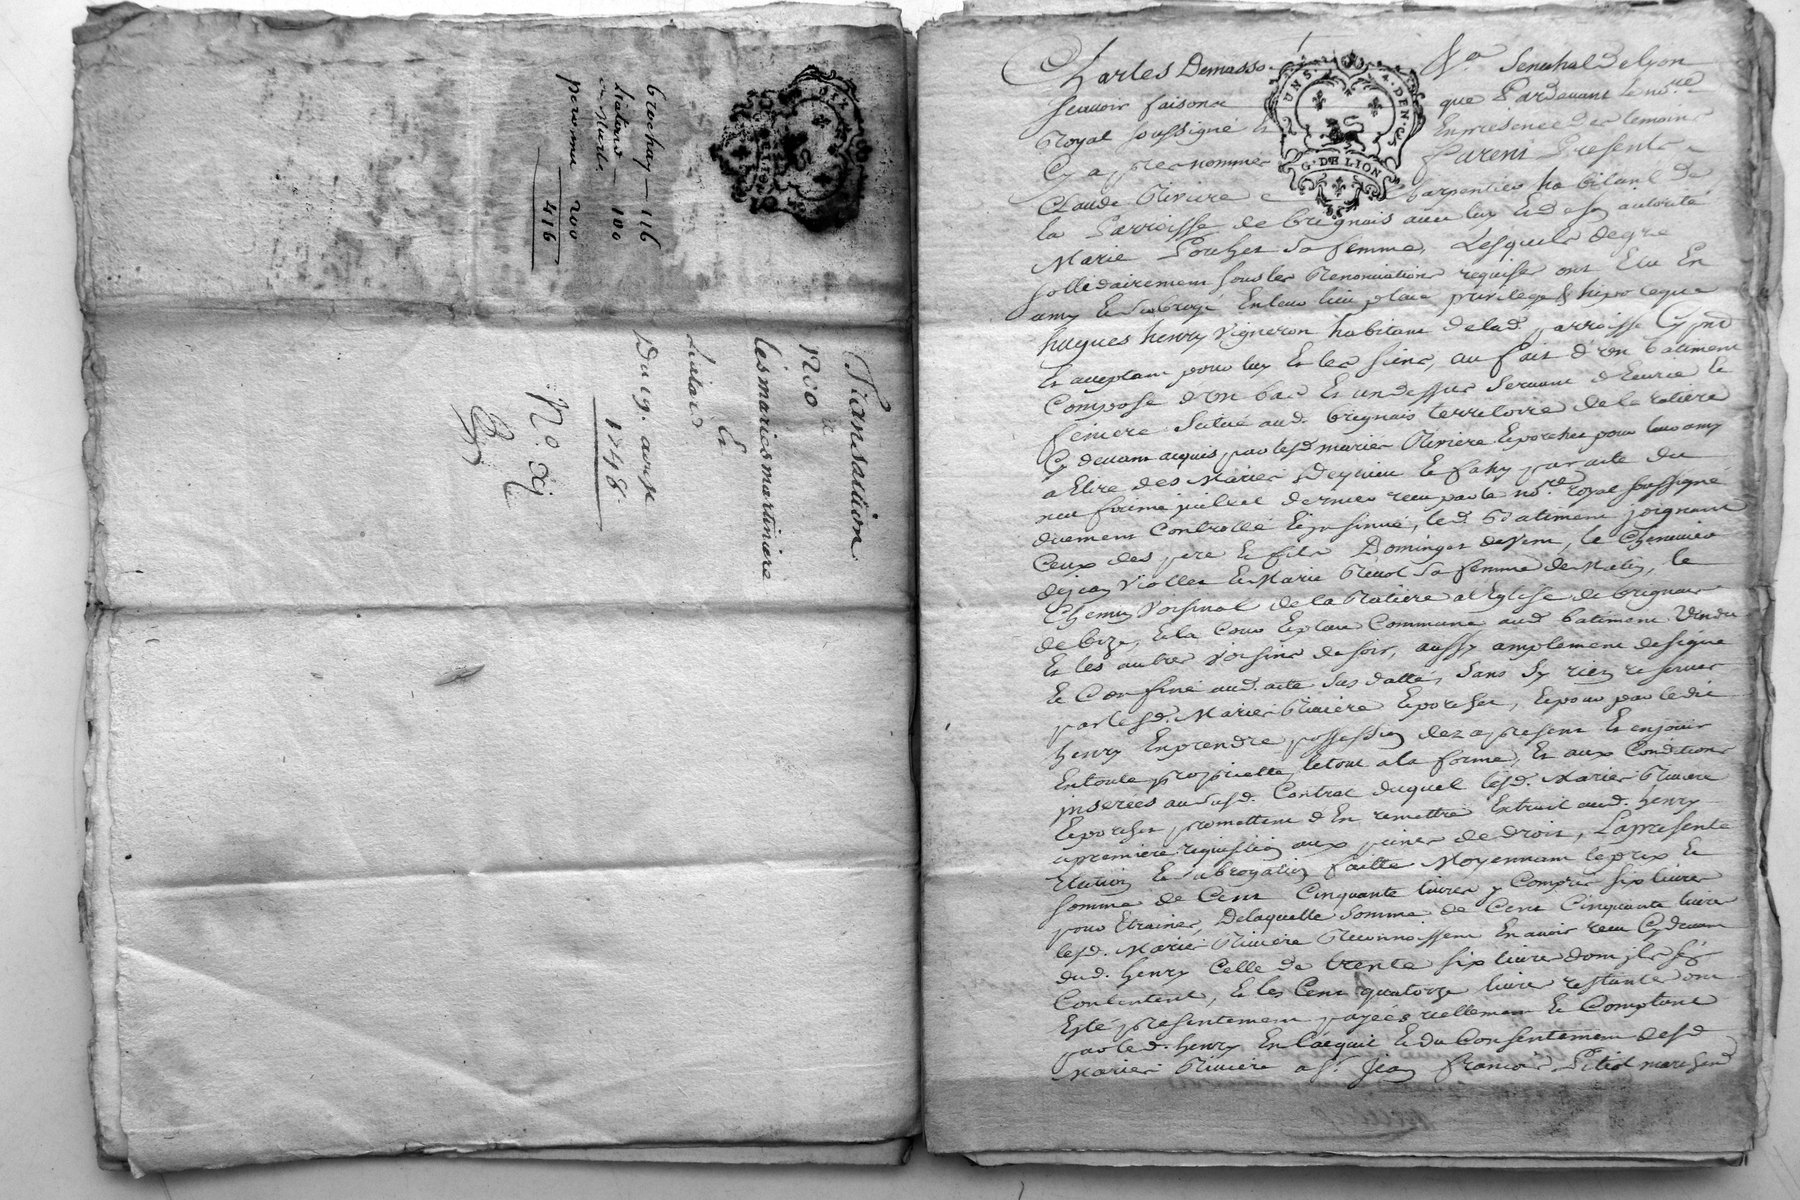 Crochay — 116
100
peromme — 200
416
Transaction
1200 tt
les maries martiniere
&
Liatard
Du 19. aoust
1748
N.º
Charles Demasso Sénéchal de lyon
UN S. 4. DEN.
G. DE LION
scavoir faisons que Pardevant le no.re
Royal soussigné et En presence des temoins
Cy apres nommés furent Presents
Claude Riviere charpentier habitant de
la Parroisse de brignais avec luy et de son autorité
Marie Porchet sa femme, Lesquels de gré
sollidairement sous les Renonciations requises ont Elu En
amy et subrogé En leur lieu place privilege & hipoteque
hugues henry vigneron habitant de lad. parroisse Cy pnt
Et acceptant pour luy Et les siens, au fait d'un batiment
Composé d'un bas Et un dessus servant d'Ecurie et
feniere Scitué aud. brignais territoire de la ratiere
Cy devant acquis par lesd maries Riviere Et porchet pour leur amy
a Elire des Maries et fahy par acte du
neuf juillet dernier recu par le no.re royal soussigné
duement Controllé Et jnsinué, led. Batiment joignant
Ceux des pere & fils Dominget de vent, le Chenevier
de jean Viollet Et Marie sa femme de Matin, le
Chemin Voisinal de la Ratiere a l'Eglise de brignais
de bize, Et la Cour Et place Commune aud batiment Vendu
Et les autres voisins de soir, aussy amplement designé
Et Confiné aud. acte sus datté, sans sy rien reserver
par lesd. Maries Riviere Et porchet, Et pour par ledit
henry En prendre possession dez a present Et en jouir
En toute proprietté, le tout a la forme, Et aux Conditions
jnserées au susd. Contrat duquel lesd. Maries Riviere
Et porchet promettent d'En remettre Extrait aud. henry
a premiere requisition aux peines de droit, La presente
Election Et subrogation faitte Moyennant le prix Et
somme de Cent Cinquante livres y Compris six livres
pour Etraines, De laquelle somme de Cent Cinquante livres
lesd. Maries Riviere Reconnoissent En avoir recu Cy devant
dud. henry Celle de trente six livres dont jls se
Contentent, Et les Cent quatorze livres restante ont
Esté presentement payées reellement Et Comptant
par led. henry En l'acquit Et du Consentement desd
Maries Riviere a S.r Jean François Petiot marchand